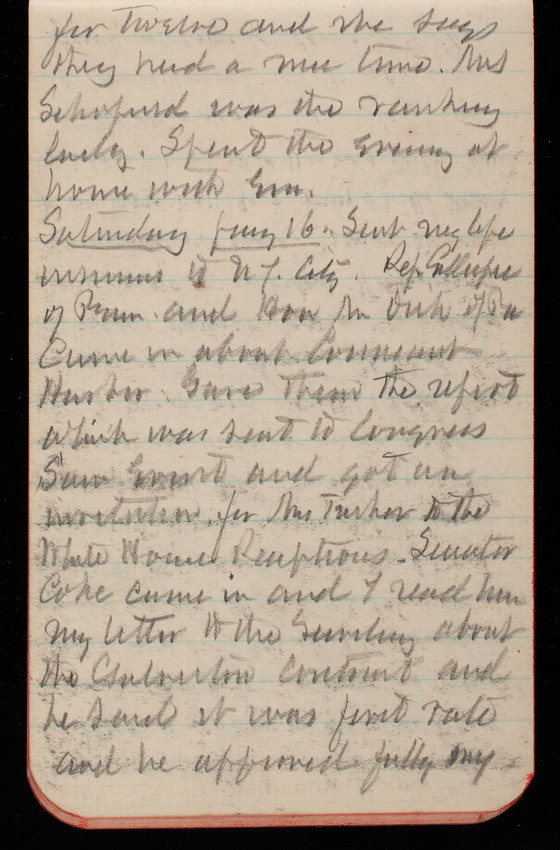 for twelve and she says
they had a nice time. Mrs
Schofield was the ranking
lady. Spent the evening at
home with Em.
Saturday Jany 16. Sent my life
insurance to N.Y. City. Rep Gillespie
of Penn. and Hon Mr Dick of Pa
Came in about Conneaut
Harbor. Gave them the report
which was sent to Congress
Saw Ernst and got an
invitation for Mrs Tucker to the
White House Receptions. Senator
Coke came in and I read him
my letter to the Secretary about
the Galveston contract and
he said it was first rate
and he approved fully my